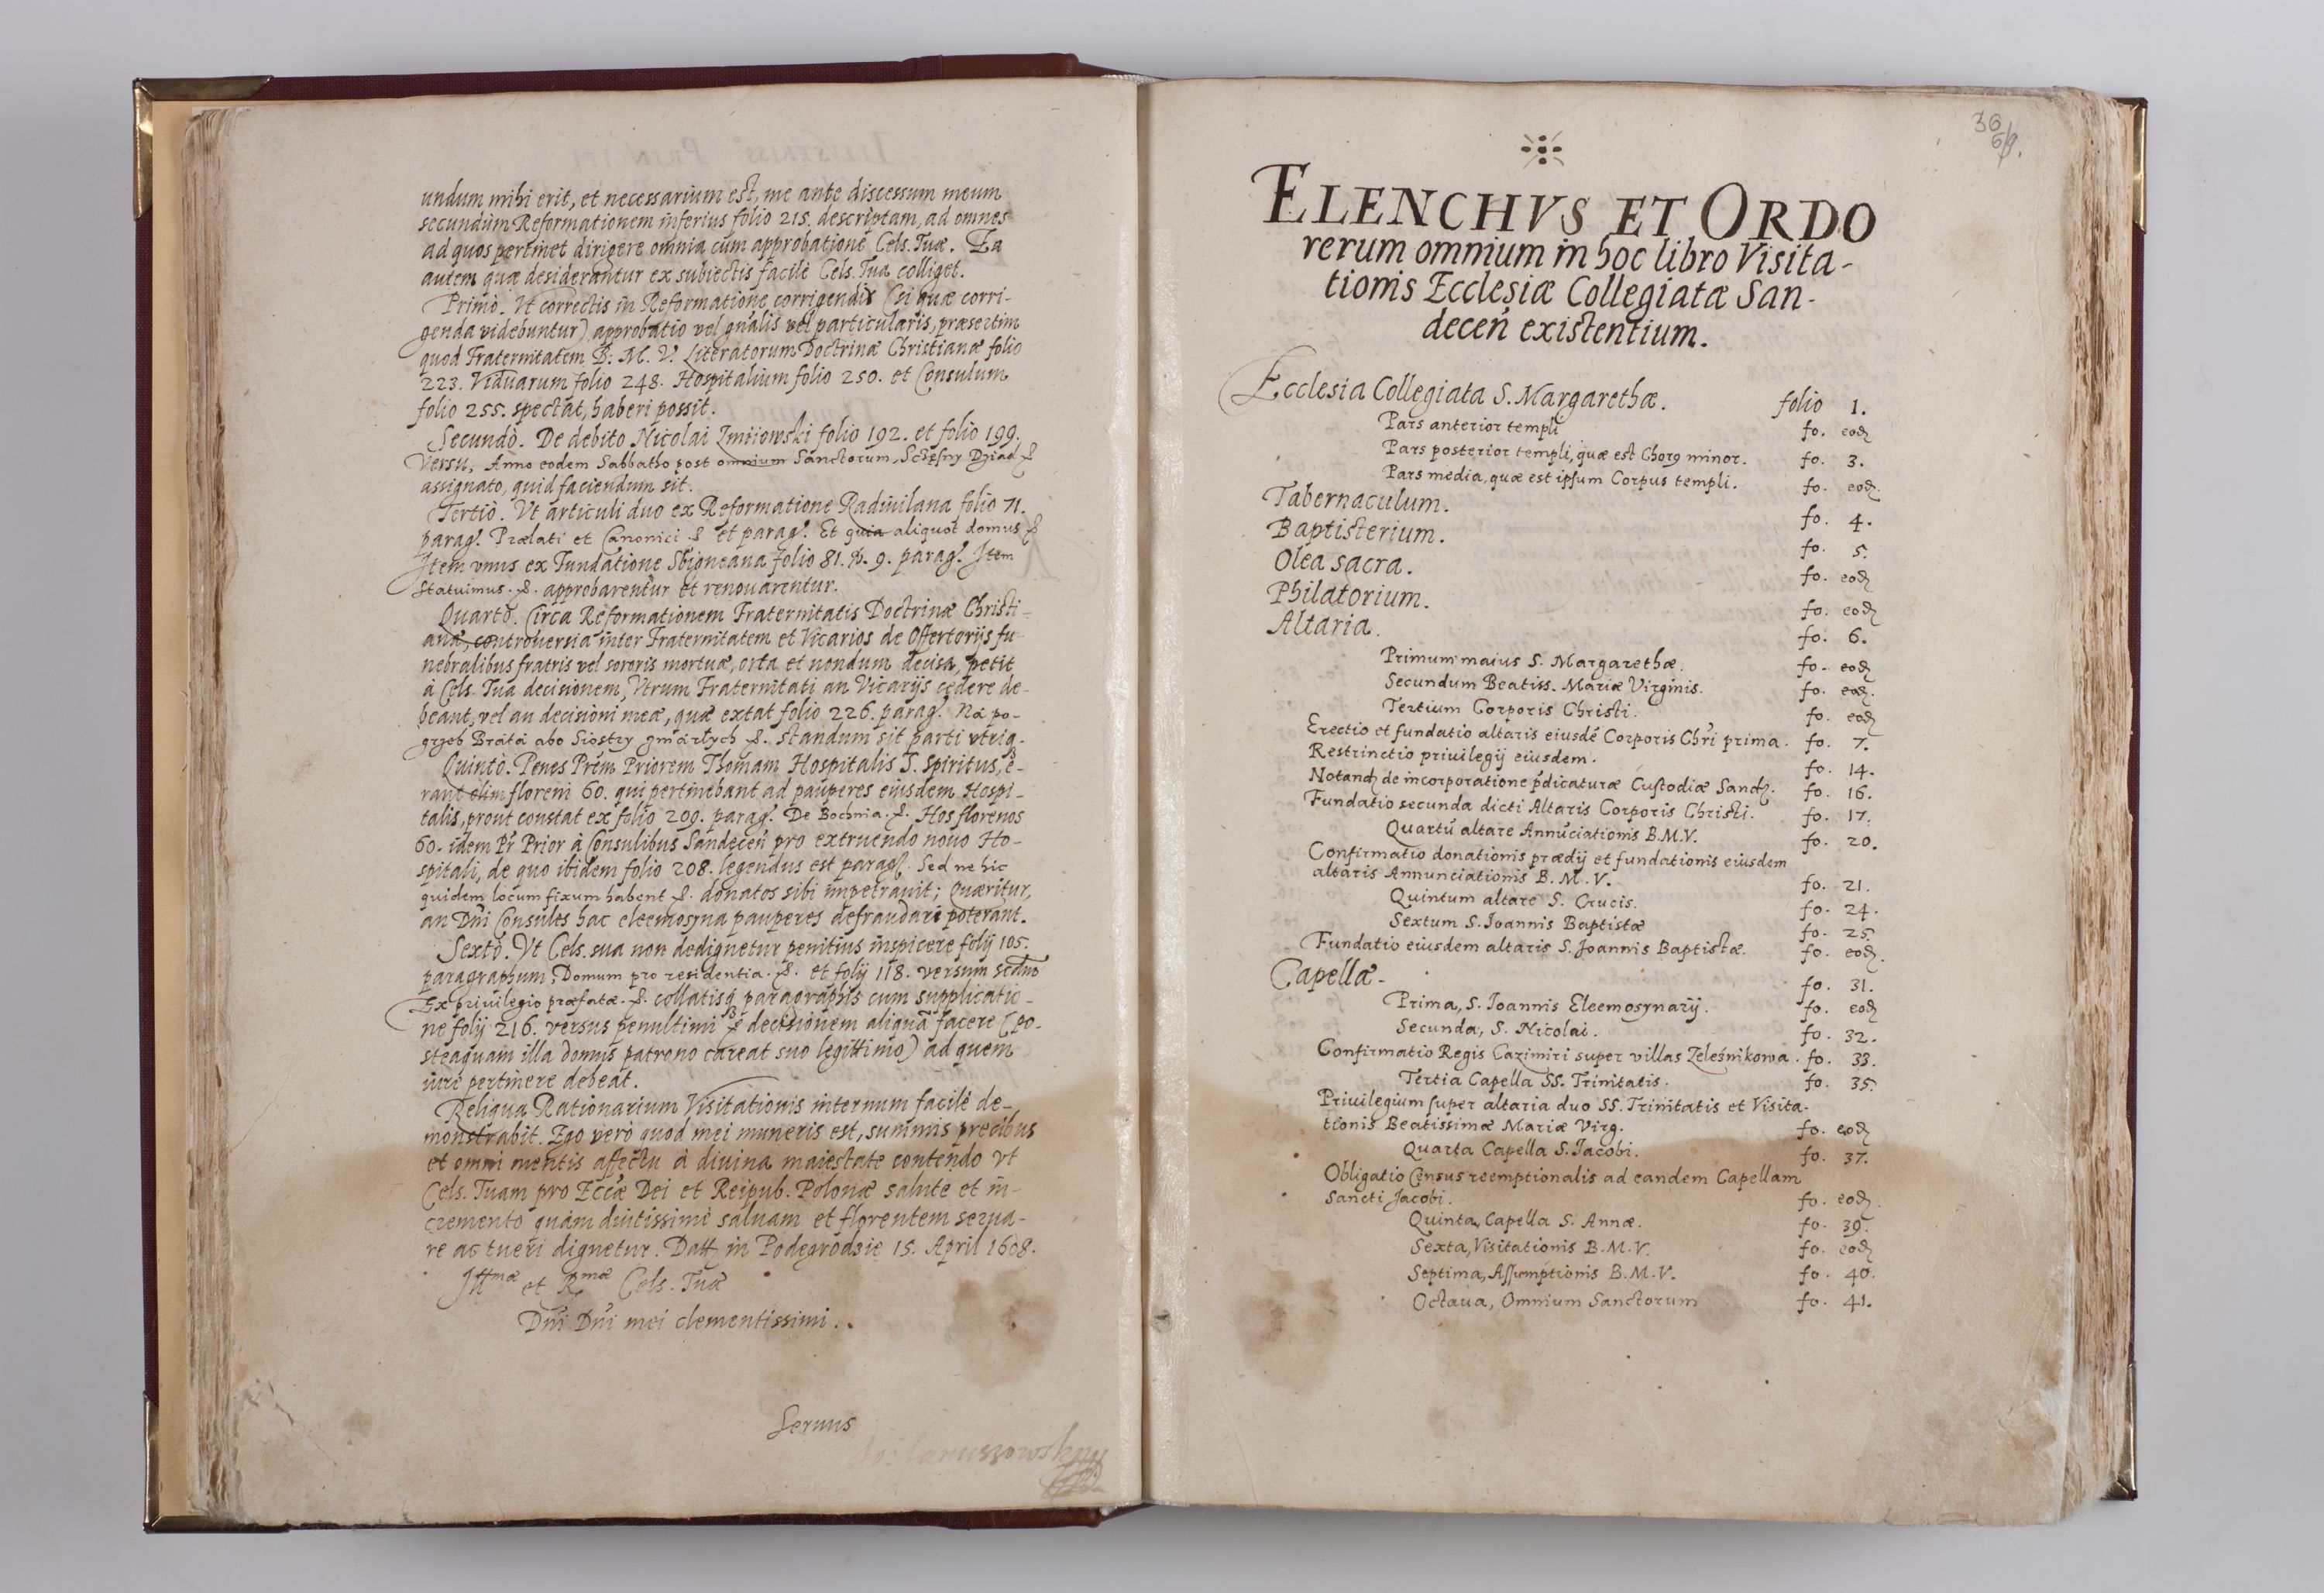 undum mihi erit, et necessarium est, me ante discessum meum
secundùm Reformationem inferius folio 215. descriptam, ad omnes
ad quos pertinet dirigere omnia cum approbatione Cels. Tuæ. Ea
autem quæ desiderantur ex subiectis facilè Cels. Tua colliget.
Primò. Vt correctis in Reformatione corrigendis (si quæ corri-
genda videbuntur) approbatio vel gnãlis vel particularis, præsertim
quod Fraternitatem B. M. V. Literatorum Doctrinæ Christianæ folio
223. Viduarum folio 248. Hospitalium folio 250. et Consulum
folio 255. spectat, haberi possit.
Secundò. De debito Nicolai Zmiiowski folio 192. et folio 199.
versu, Anno eodem Sabbatho post omnium Sanctorum, Sczęsny Dziad
assignato, quid faciendum sit.
Tertiò. Vt articuli duo ex Reformatione Radiuilana folio 71.
parag. Prælati et Canonici et parag. Et quia aliquot domus
Item vnus ex Fundatione Sbigneana folio 81. 9. parag. Item
statuimus. approbarentur et renouarentur.
Quartò. Circa Reformationem Fraternitatis Doctrinæ Christi-
anæ, controuersia inter Fraternitatem et Vicarios de Offertorijs fu-
nebralibus fratris vel sororis mortuæ, orta et nondum decisa, petit
à Cels. Tua decisionem, Vtrum Fraternitati an Vicarijs cedere de-
beant, vel an decisioni meæ, quæ extat folio 226. parag. Ná po-
grzeb Bráta ábo Siostry zmárłych standum sit parti vtriq.
Quintò. Penes Prẽm Priorem Thomam Hospitalis S. Spiritus, e-
rant olim floreni 60. qui pertinebant ad pauperes eiusdem Hospi-
talis, prout constat ex folio 209. parag. De Bochnia. Hos florenos
60. idem Pr Prior à Consulibus Sandeceñ pro extruendo nouo Ho-
spitali, de quo ibidem folio 208. legendus est parag. Sed ne hic
quidem locum fixum habent donatos sibi impetrauit; Quæritur,
an Dñi Consules hac eleemosyna pauperes defraudari poterant.
Sextò. Vt Cels. sua non dedignetur penitius inspicere folij 105.
paragraphum, Domum pro residentia. et folij 118. versum
Ex priuilegio præfatæ. collatisq paragraphis cum supplicatio-
ne folij 216. versus penultimi decisionem aliquã facere (po-
steaquam illa domus patrono careat suo legittimo) ad quem
iure pertinere debeat.
Reliqua Rationarium Visitationis internum facilè de-
monstrabit. Ego verò quod mei muneris est, summis precibus
et omni mentis affectu à diuina maiestate contendo vt
Cels. Tuam pro Eccæ Dei et Reipub. Polonæ salute et in-
cremento quàm diutissimè saluam et florentem serua-
re ac tueri dignetur. Datt in Podegrodzie 15. April 1608.
Illmæ et Rmæ Cels. Tuæ
Dñi Dñi mei clementissimi.
Seruus
36
69.
ELENCHVS ET ORDO
rerum omnium in hoc libro Visita-
tionis Ecclesiæ Collegiatæ San-
deceñ existentium.
Ecclesia Collegiata S. Margarethæ. folio 1.
Pars anterior templi fo. eod
Pars posterior templi, quæ est Chorg minor. fo. 3.
Pars media, quæ est ipsum Corpus templi. fo. eod.
Tabernaculum. fo. 4.
Baptisterium. fo. 5.
Olea sacra. fo. eod
Philatorium. fo. eod
Altaria. fo. 6.
Primum maius S. Margarethæ. fo. eod
Secundum Beatiss. Mariæ Virginis. fo. eod.
Tertium Corporis Christi. fo. eod
Erectio et fundatio altaris eiusdẽ Corporis Chri prima. fo. 7.
Restrinctio priuilegij eiusdem. fo. 14.
Notand de incorporatione pdicaturæ Custodiæ Sand. fo. 16.
Fundatio secunda dicti Altaris Corporis Christi. fo. 17.
Quartũ altare Annũciationis B.M.V. fo. 20.
Confirmatio donationis prædij et fundationis eiusdem
altaris Annunciationis B. M. V. fo. 21.
Quintum altare S. Crucis. fo. 24.
Sextum S. Ioannis Baptistæ fo. 25.
Fundatio eiusdem altaris S. Joannis Baptistæ. fo. eod.
Capellæ. fo. 31.
Prima, S. Ioannis Eleemosynarij. fo. eod
Secunda, S. Nicolai. fo. 32.
Confirmatio Regis Cazimiri super villas Zelesnikowa. fo. 33.
Tertia Capella SS. Trinitatis. fo. 35.
Priuilegium super altaria duo SS. Trinitatis et Visita-
tionis Beatissimæ Mariæ Virg. fo. eod
Quarta Capella S. Jacobi. fo. 37.
Obligatio Census reemptionalis ad eandem Capellam
Sancti Jacobi. fo. eod.
Quinta, Capella S. Annæ. fo. 39.
Sexta, Visitationis B.M.V. fo. eod
Septima, Assumptionis B.M.V. fo. 40.
Octaua, Omnium Sanctorum fo. 41.